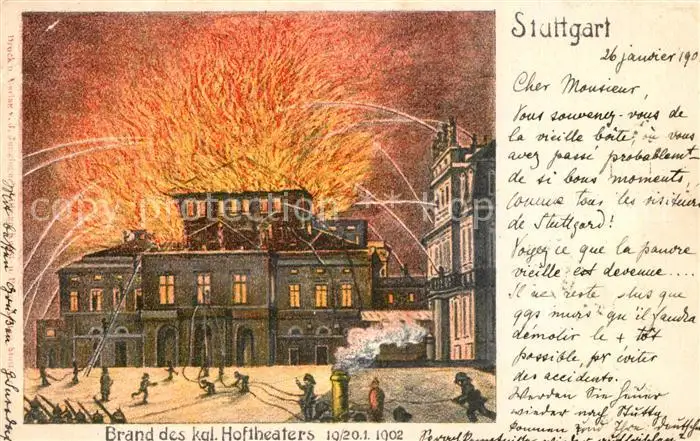 Stuttgart
26 janvier 190
Cher Monsieur,
Vous souvenez-vous de
la vieille boîte, où vous
avez passé probablement
de si bons moments
comme tous les visiteurs
de Stuttgard!
Voyez ce que la pauvre
vieille est devenue....
Il ne reste plus que
qqs murs qu'il faudra
démolir le + tôt
possible, pr éviter
des accidents.
Werden Sie heuer
wieder nach Stuttg.
kommen
Brand des kgl. Hoftheaters 19/20.1. 1902
Mit besten Grüßen
copyright protection